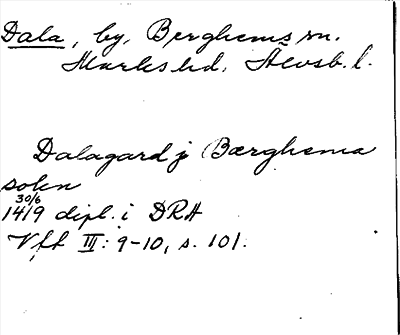 Dala, by, Berghems sn.
Marks hd, Älvsb. l.
Dalagard j Bærghema
sokn
30/6
1419 dipl. i DRA
Vft III: 9-10, s. 101.